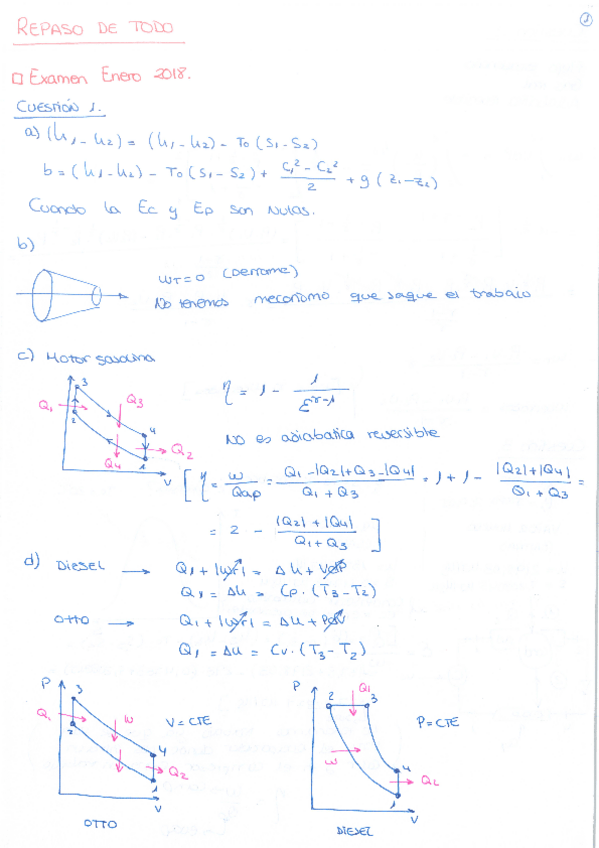 1
REPASO DE TODO
□ Examen Enero 2018.
CUESTIÓN 1.
a) (h₁ - h₂) = (h₁ - h₂) - T₀ (S₁ - S₂)
b = (h₁ - h₂) - T₀ (S₁ - S₂) + (C₁² - C₂²)/2 + g (z₁ - z₂)
Cuando la Ec y Ep son nulas.
b)
WT = 0 (Derrame)
No tenemos mecanismo que saque el trabajo
c) Motor gasolina
η = 1 - 1/ε^(γ-1)
No es adiabatica reversible
3 Q₁ Q₃ 2 4 Q₂ Q₄ 1 V
[ η = W/Qap = (Q₁ - |Q₂| + Q₃ - |Q₄|)/(Q₁ + Q₃) = 1 + 1 - (|Q₂| + |Q₄|)/(Q₁ + Q₃) =
= 2 - (|Q₂| + |Q₄|)/(Q₁ + Q₃) ]
d) Diesel → Q₁ + |Wr| = Δu + VdP
Q₁ = Δu = Cp · (T₃ - T₂)
OTTO → Q₁ + |Wr| = Δu + PdV
Q₁ = Δu = Cv · (T₃ - T₂)
P 3 Q₁ W V = CTE 2 4 Q₂ 1 V
OTTO
P 2 Q₁ 3 P = CTE W 4 Q₂ 1 V
DIESEL